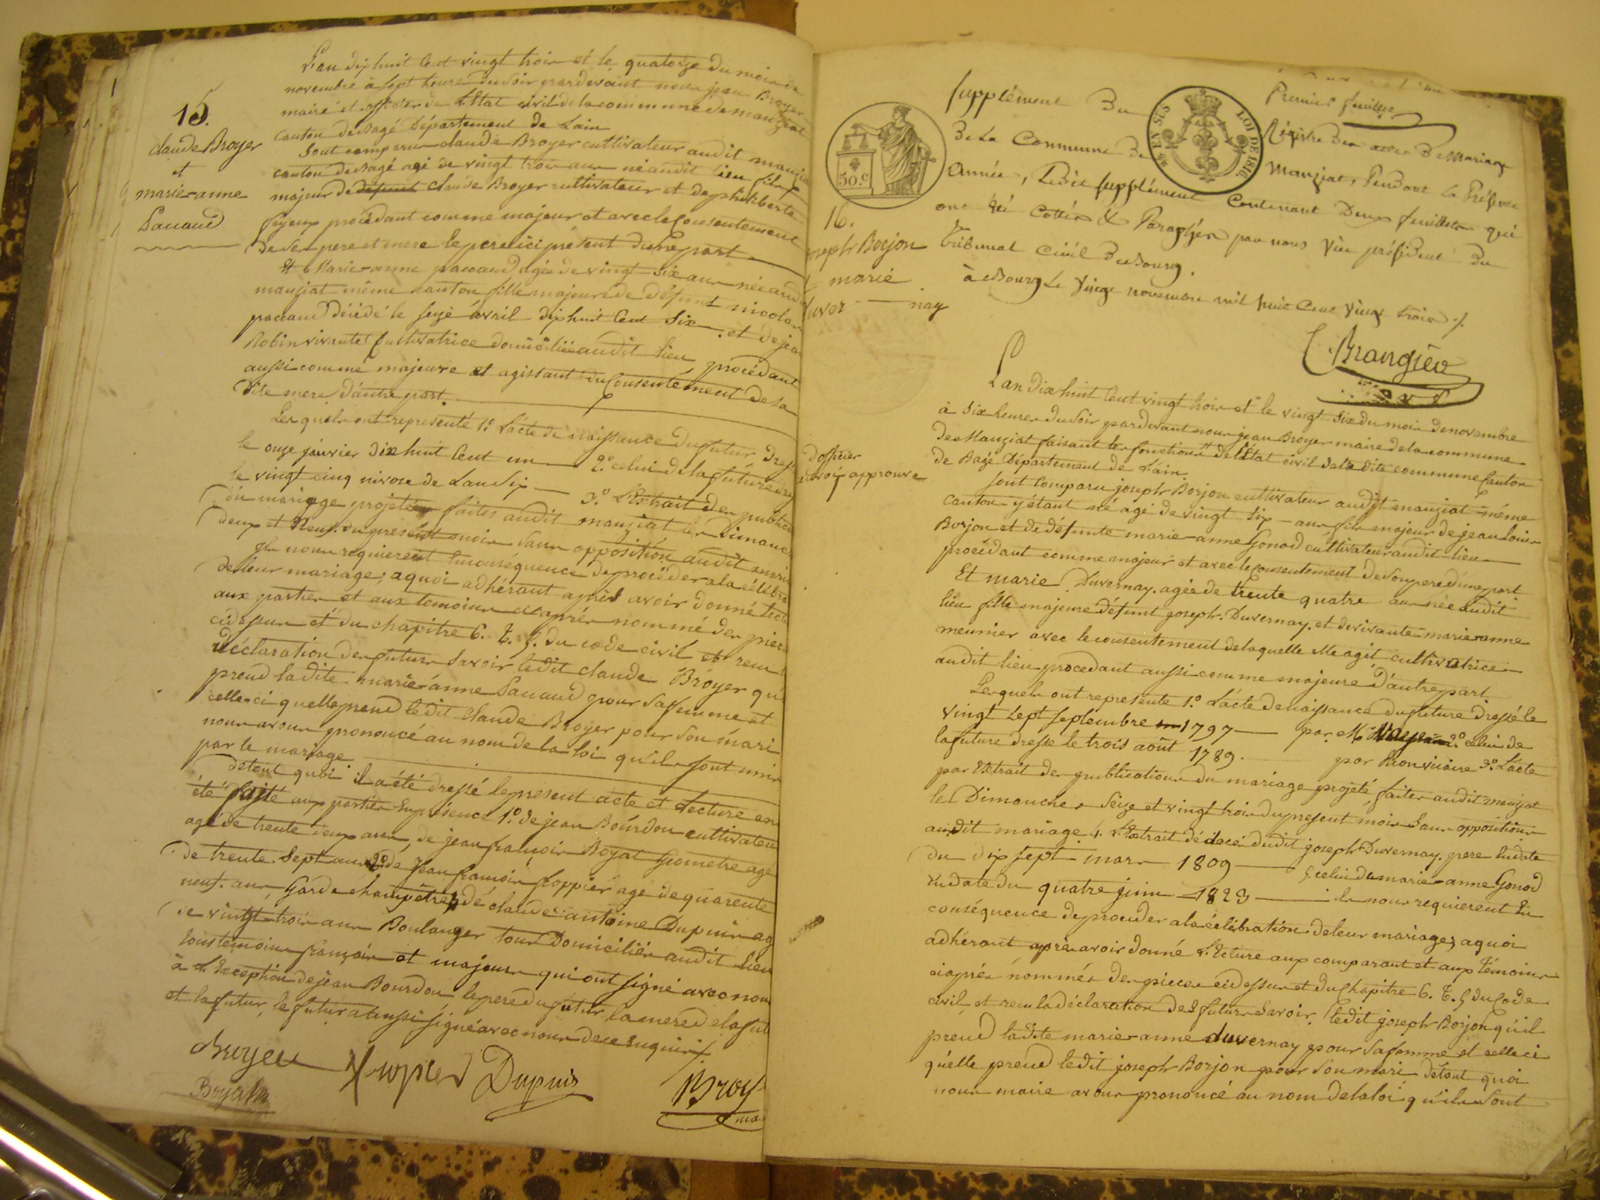 15.
claude Broyer
et
marie anne
Pacaud
L'an dix huit cent vingt trois et le quatorze du mois de
novembre à sept heures du soir par devant nous jean Broyer
maire et officier de l'état civil de la commune de manziat
canton de Bagé département de Lain
Sont comparu claude Broyer cultivateur audit manziat
canton de Bagé agé de vingt trois ans né audit lieu fils
majeur de défunt claude Broyer cultivateur et de philiberte
procédant comme majeur et avec le consentement
de ses pere et mere le pere ici présent d'une part
Et Marie anne pacaud agée de vingt six ans née audit
manziat même canton fille majeure de défunt nicolas
pacaud décédé le seize avril dix huit cent six et de jea
Robin vivante cultivatrice domiciliée audit lieu procédant
aussi comme majeure et agissant du consentement de sa
dite mere d'autre part
Les quels ont representé 1.º l'acte de naissance du futur dressé
le onze janvier dix huit cent un 2.º celui de la future
le vingt cinq nivose de l'an six 3.º l'extrait des public
du mariage projeté faites audit manziat les dimanc
deux et neuf du present mois sans opposition audit mari
Ils nous requierent en conséquence de procéder a la célébra
de leur mariage; a quoi adhérant après avoir donné lect
aux parties et aux temoins ci après nommé des piec
ci dessus et du chapitre 6. T. 5. du code civil et recu
déclaration des futurs savoir ledit claude Broyer qu
prend la dite marie anne Pacaud pour sa femme et
celle ci quelle prend le dit claude Broyer pour son mari
nous avons prononcé au nom de la loi qu'ils sont unis
par le mariage
De tout quoi il a été dressé le present acte et lecture en
été faite aux parties En présence 1.º de jean Bourdon cultivateur
agé de trente deux ans, de jean françois Boyat Géometre agé
de trente sept ans 3.º de jean francois Poppier agé de quarente
neuf ans Garde champêtre de claude antoine Dupuis ag
de vingt trois ans Boulanger tous Domiciliés audit lieu
tous temoins français et majeurs qui ont signé avec nous
à l'exception de jean Bourdon le pere du futur, la mere de la fut
et la future, le futur a aussi signé avec nous de ce enquis
Broyer Poppier Dupuis Broy
Boyat ma
Premier feuillet
supplément Du Régistre Des actes De Mariage
De La Commune De Manziat, Pendant La Présente
Année, Ledit supplément Contenant Deux feuillets qui
ont été cottés & Paraphés par nous Vice président Du
Tribunal Civil De Bourg.
à Bourg Le Vingt novembre mil huit Cent vingt trois ./.
Brangier
50.c
EN SUS
LOI DE 1816
16.
joseph Borjon
et marie
Duver nay
L'an dix huit cent vingt trois et le vingt six du mois de novembre
à six heures du soir par devant nous jean Broyer maire de la commune
de Manziat faisant les fonctions d'officier de l'état civil de la dite commune canton
de Bagé Département de Lain
d'officier
renvoi approuvé
Sont comparu joseph Borjon cultivateur audit manziat même
canton y étant né agé de vingt six ans fils majeur de jean louis
Borjon et de défunte marie anne Gonod cultivateur audit lieu
procédant comme majeur et avec le consentement de son pere d'une part
Et marie Duvernay agée de trente quatre ans née audit
lieu fille majeure défunt joseph Duvernay et de vivante marie anne
meunier avec le consentement de laquelle elle agit cultivatrice
audit lieu procedant aussi comme majeure D'autre part
Lesquels ont representé 1.º L'acte de naissance du future dressé le
vingt sept septembre 1797 par 2.º celui de
la future dressé le trois août 1789 par Bon vicaire 3.º L'acte
par extrait des publications du mariage projeté faites audit manziat
les Dimanches seize et vingt trois du present mois sans opposition
audit mariage 4. l'Extrait de décé dudit joseph Duvernay pere en date
du dix sept mars 1809 & celui de marie anne Gonod
en date du quatre juin 1823 ils nous requierent En
conséquence de proceder a la célébration de leur mariage; a quoi
adhérant après avoir donné lecture aux comparant et aux témoins
ci après nommés des pièces ci dessus et du Chapitre 6. T. 5 du Code
civil, et recu la déclaration des futurs savoir: le dit joseph Borjon qu'il
prend la dite marie anne duvernay pour sa femme et celle ci
quelle prend ledit joseph Borjon pour son mari de tout quoi
nous maire avons prononcé au nom de la loi qu'ils sont